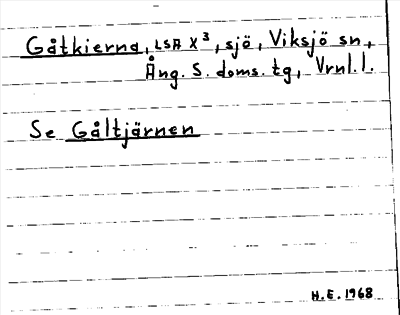 Gåtkierna, LSA X³, sjö, Viksjö sn,
Ång. S. doms. tg, Vrnl. l.
Se Gåltjärnen
H.E. 1968